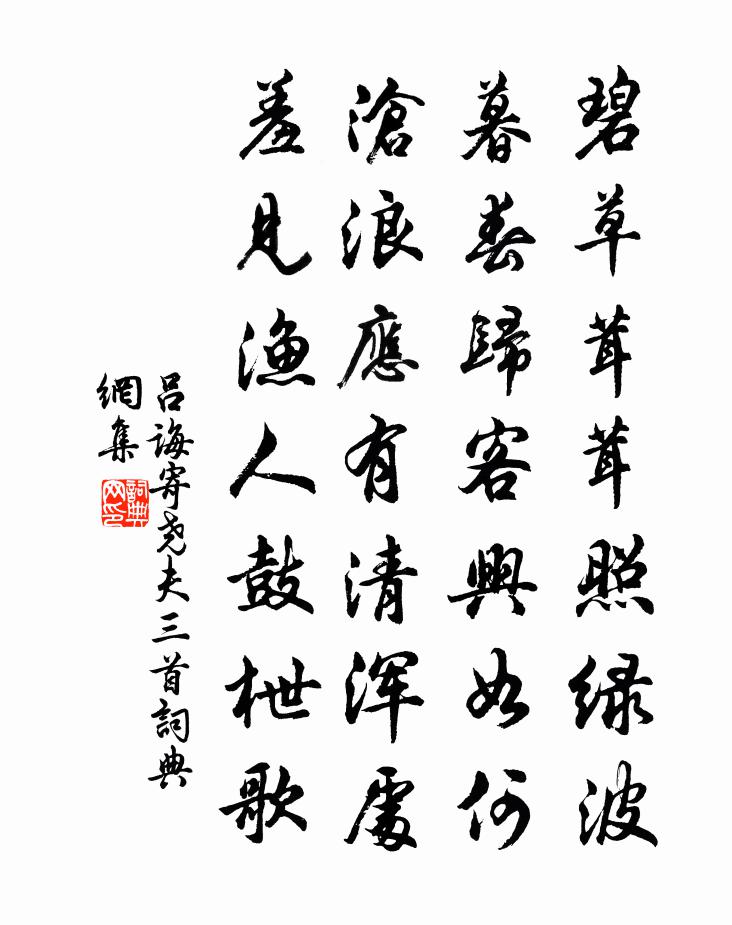 碧草茸茸照緑波
暮春歸客興如何
滄浪應有清渾處
羞見漁人鼓枻歌
吕誨寄尧夫三首詞典
網集
詞典网印